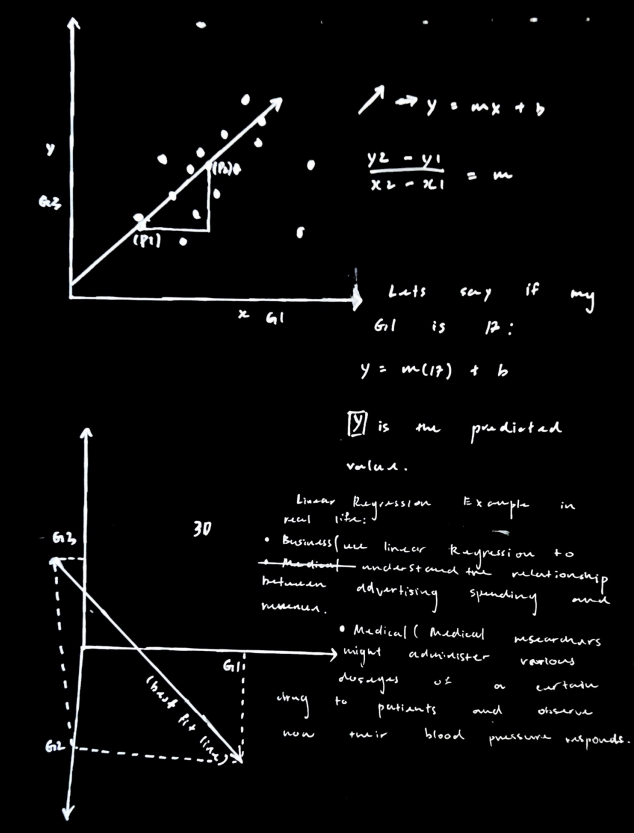 y
G3
(P1)
(P2)
x G1
→ y = mx + b
y2 - y1
x2 - x1
= m
Lets say if my
G1 is 17:
y = m(17) + b
y is the predicted
value.
3D
G3
G1
G2
(best fit line)
Linear Regression Example in
real life:
• Business (use linear Regression to
• Medical understand the relationship
between advertising spending and
revenue.
• Medical ( Medical researchers
might administer various
dosages of a certain
drug to patients and observe
how their blood pressure responds.